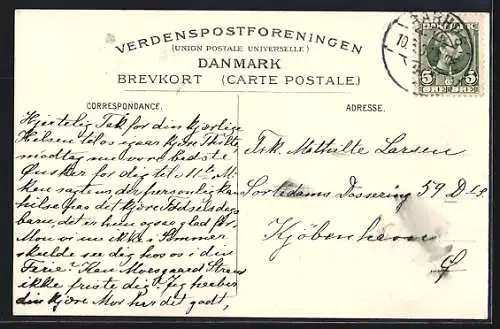 VERDENSPOSTFORENINGEN
(UNION POSTALE UNIVERSELLE)
DANMARK
BREVKORT (CARTE POSTALE.)
5 5
ØRE ØRE
CORRESPONDANCE.
Hjertelig Tak for din kjærlige
Hilsen til os egaar kjære Thilte
modtag nu vore bedste
Ønsker for dig til 11te
ken sagt os der personlig kan
hilse paa det kjære Fødselsdags
barn, det er hun ogsaa glad for.
Mon vi nu ikke i Sommer
skulde see dig hos os i din
Ferie? Kan Moesgaard Strand
ikke friste dig? Jeg haaber
din kjære Mor har det godt,
ADRESSE.
Frk. Methilte Larsen
Sortedams Dossering 59 D
Kjøbenhavn